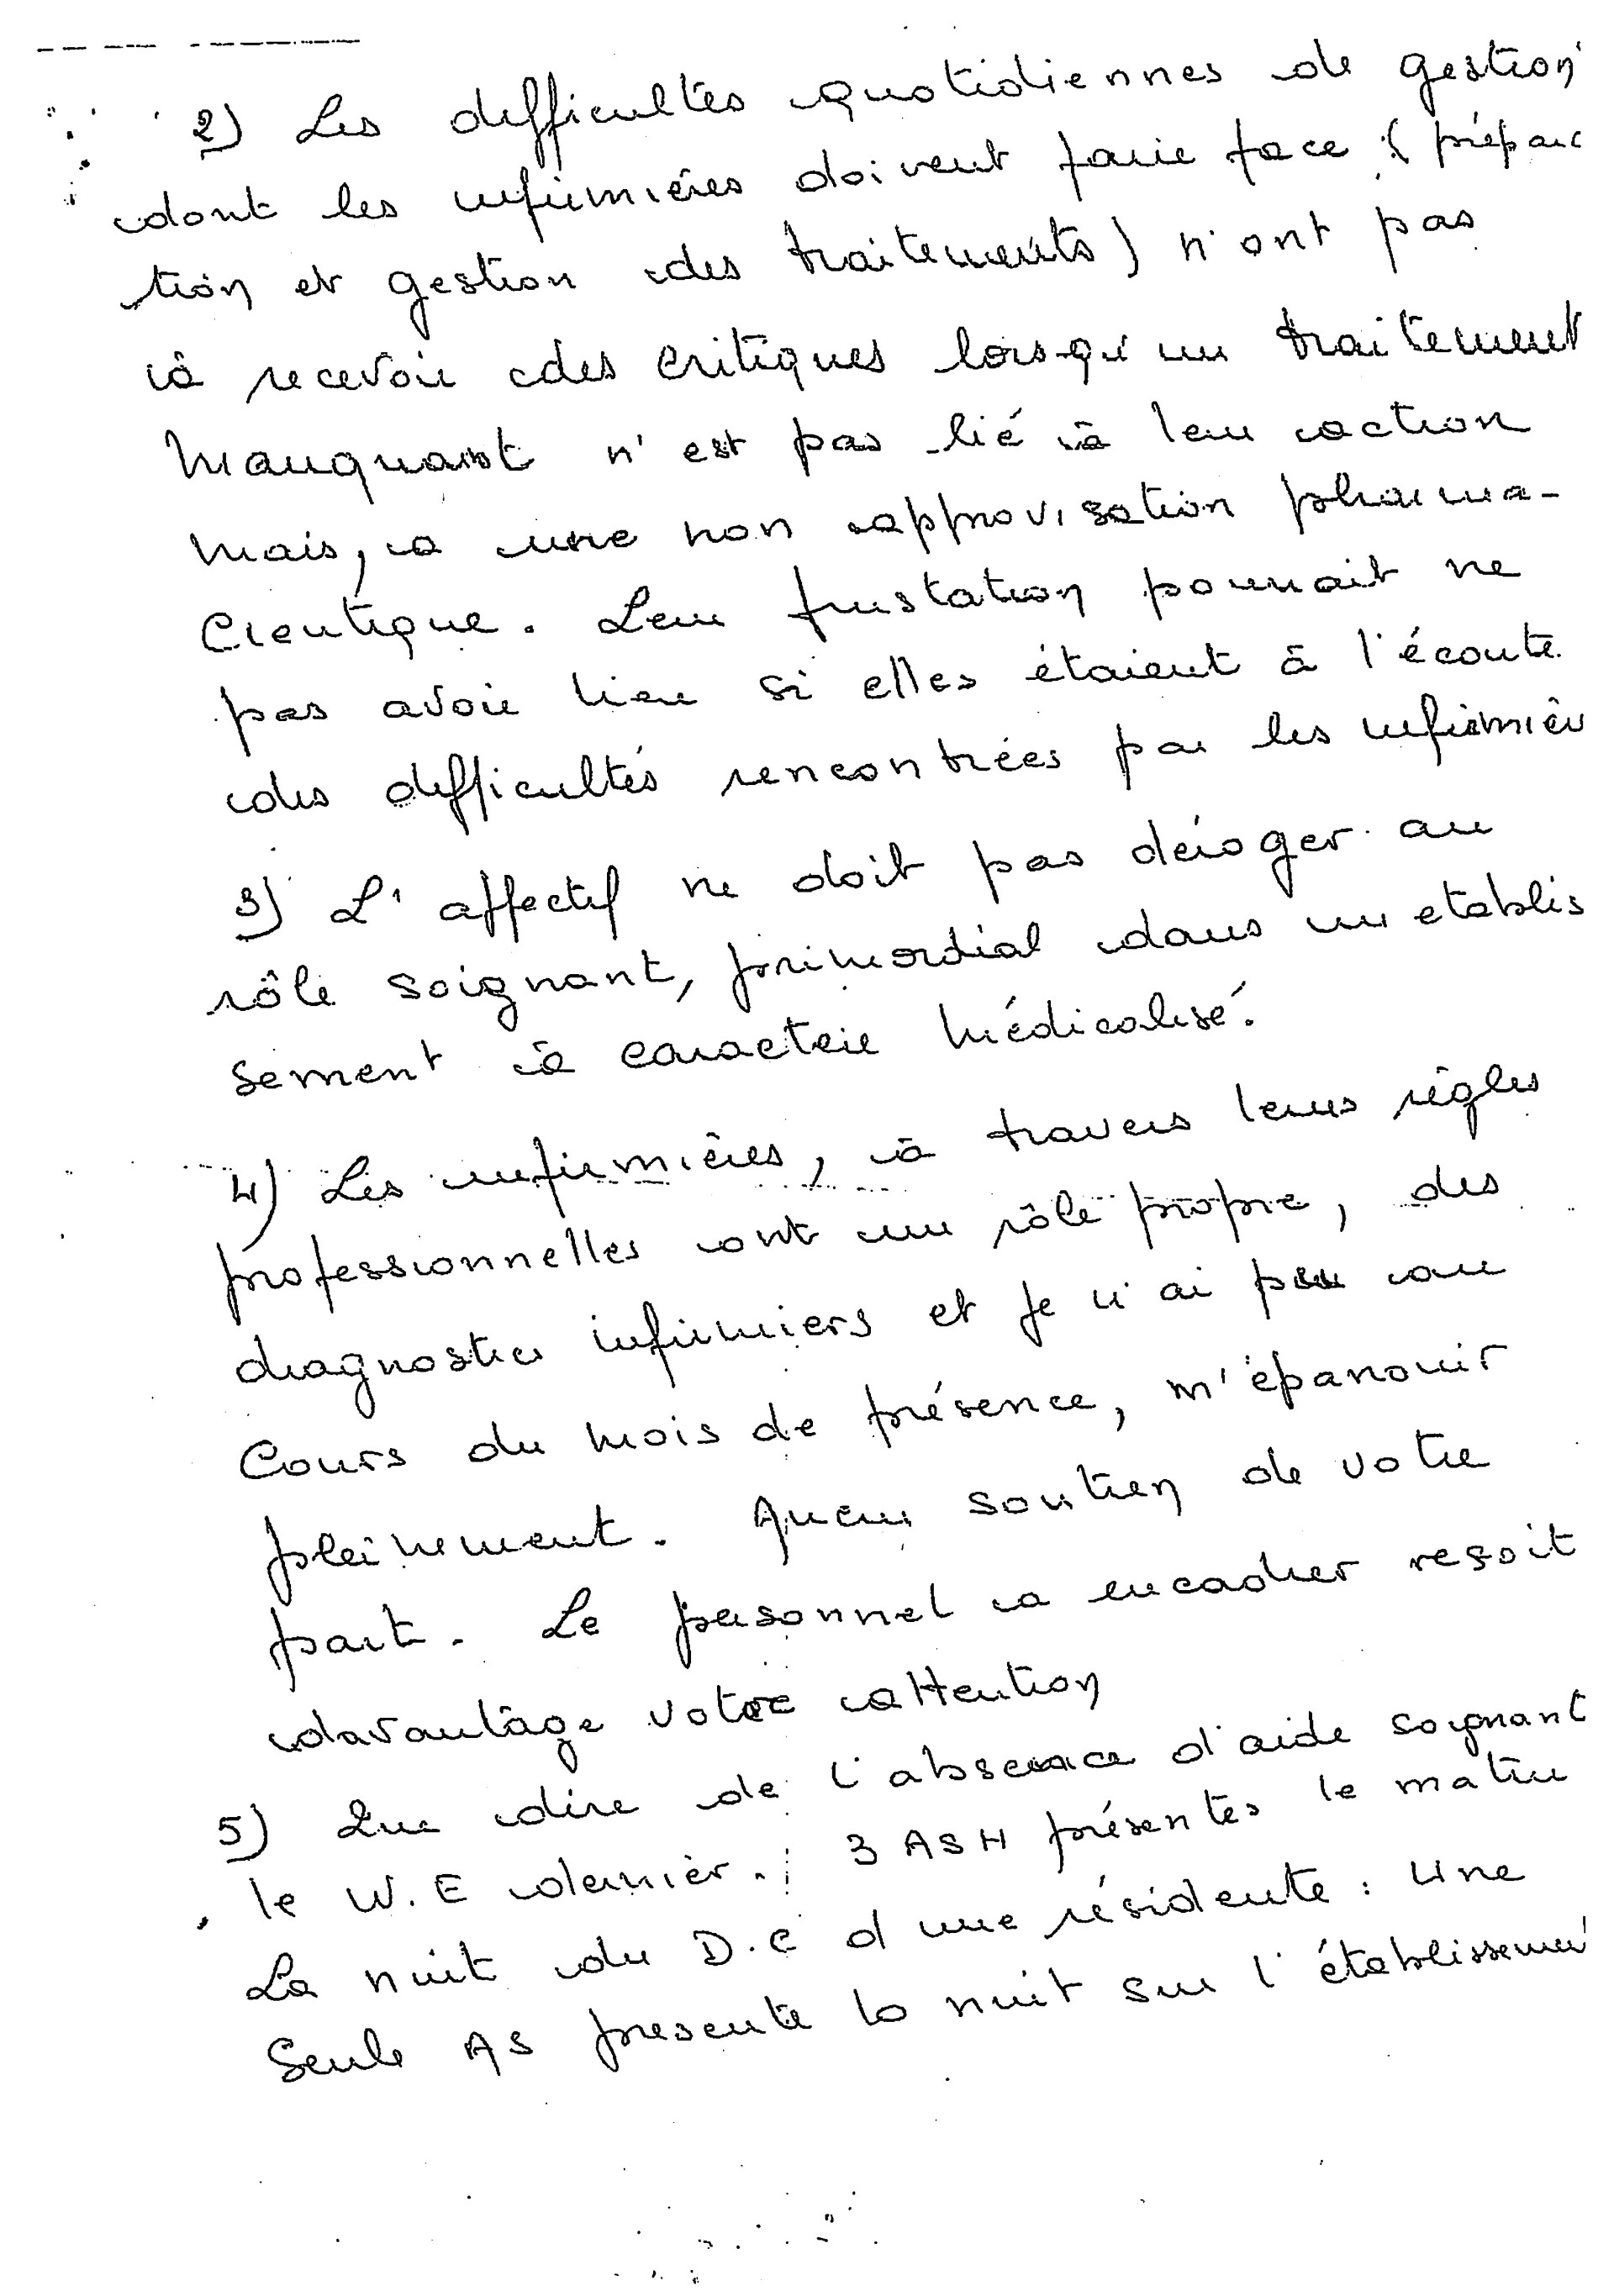 2) Les difficultés quotidiennes de gestion
dont les infirmières doivent faire face (prépara
tion et gestion des traitements) n'ont pas
à recevoir des critiques lorsqu'un traitement
manquant n'est pas lié à leur action
mais, a une non approvisation pharma-
cieutique. Leur frustation pourrait ne
pas avoir lieu si elles étaient à l'écoute
des difficultés rencontrées par les infirmièr
3) L'affectif ne doit pas déroger au
rôle soignant, primordial dans un etablis
sement à caractere médicalisé.
4) Les infirmières, à travers leurs règles
professionnelles ont un rôle propre, des
diagnostics infirmiers et je n'ai pu au
cours du mois de présence, m'épanouir
pleinement. Aucun soutien de votre
part. Le personnel a encadrer reçoit
davantage votre attention
5) Que dire de l'absence d'aide soignant
le W.E dernier. 3 ASH présentes le matin
La nuit du D.C d'une résidente : Une
seule AS presente la nuit sur l'établissement